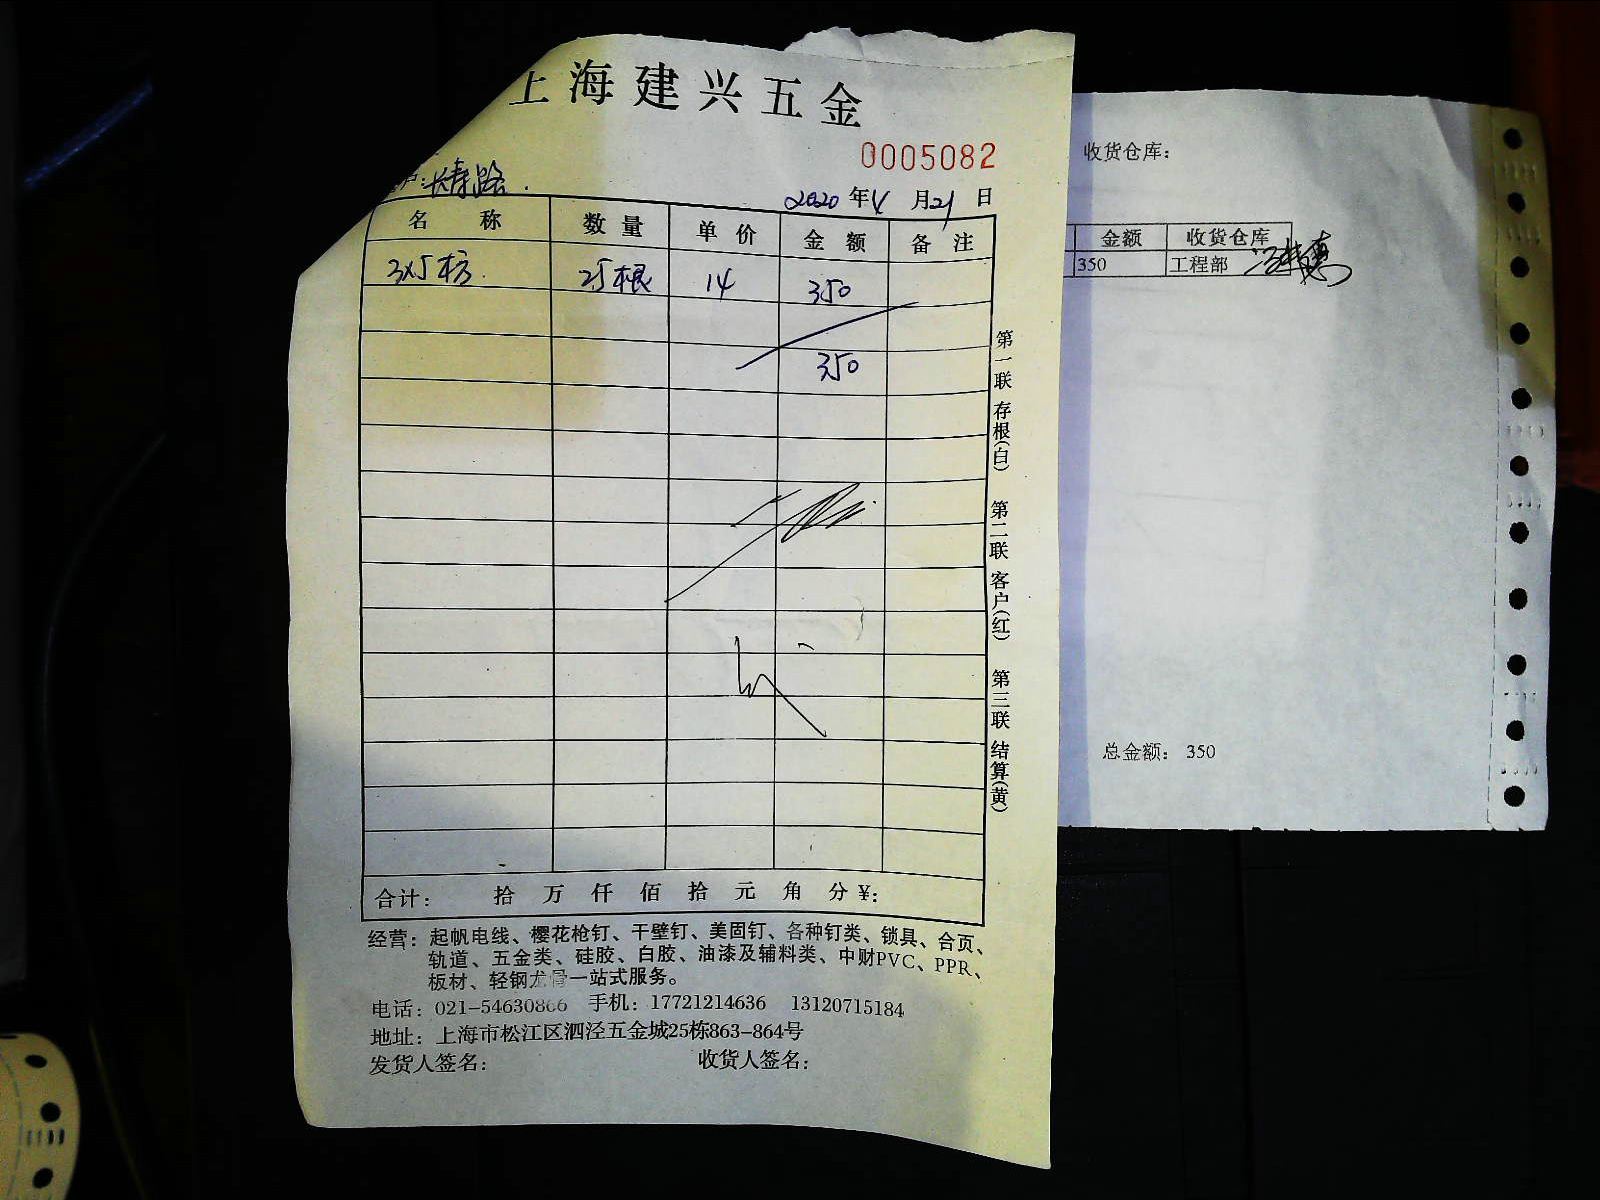 上海建兴五金
0005082
户:长寿路.
2020年4月21日
名 称 数 量 单 价 金 额 备 注
3×5 25根 14 350
350
第一联 存根(白) 第二联 客户(红) 第三联 结算(黄)
合计: 拾 万 仟 佰 拾 元 角 分 ¥:
经营: 起帆电线、樱花枪钉、干壁钉、美固钉、各种钉类、锁具、合页、
轨道、五金类、硅胶、白胶、油漆及辅料类、中财PVC、PPR、
板材、轻钢龙骨一站式服务。
电话: 021-54630866 手机: 17721214636 13120715184
地址: 上海市松江区泗泾五金城25栋863-864号
发货人签名: 收货人签名:
收货仓库:
金额 收货仓库
350 工程部
总金额: 350